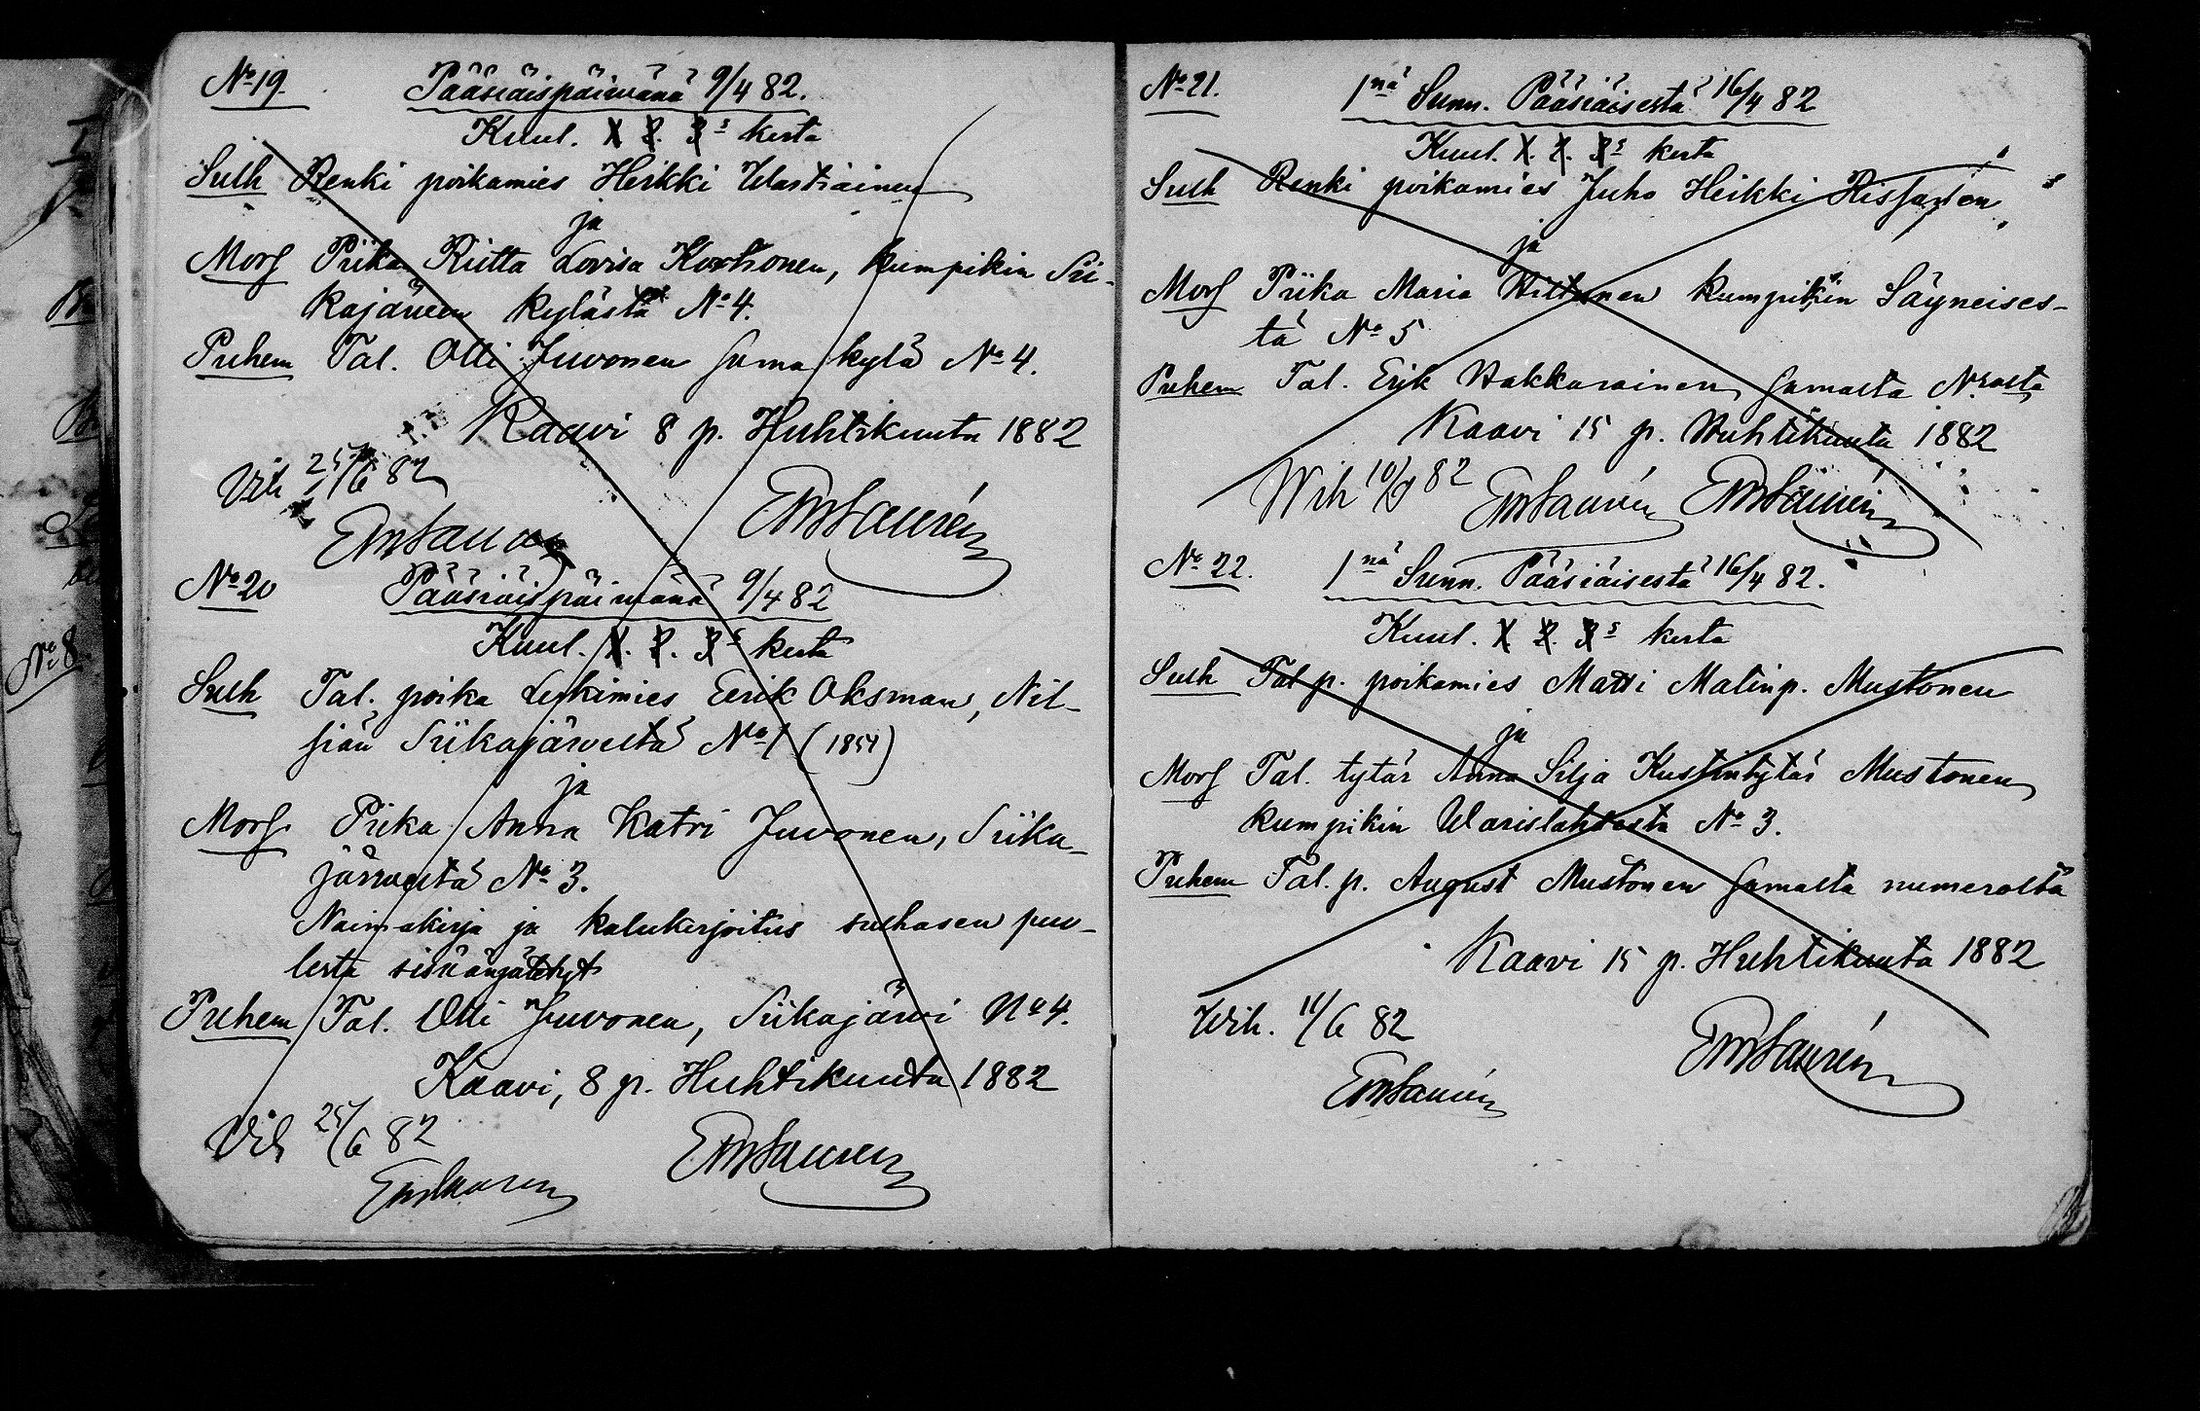 No 19.
Pääsiäispäivänä 9/4 82.
Kuul. 1. 2. 3s kerta
Sulh Renki poikamies Heikki Wartiainen
ja
Mors Piika Riitta Lovisa Korhonen, kumpikin Sii-
kajärven kylästä No 4.
Puhem Tal. Olli Juvonen sama kylä No 4.
Kaavi 8 p. Huhtikuuta 1882
Vih 25/6 82
No 20
Pääsiäispäivänä 9/4 82
Kuul. 1. 2. 3s kerta
Sulh Tal. poika Leskimies Eerik Oksman, Nil-
siän Siikajärveltä No 1 (1854)
ja
Mors Piika Anna Katri Juvonen, Siika-
järveltä No 3.
Naimakirja ja kalukirjoitus sulhasen puo-
lesta sisäänjätetyt
Puhem Tal. Olli Juvonen, Siikajärvi No 4.
Kaavi, 8 p. Huhtikuuta 1882
Vih 25/6 82
No 8
No 21.
1nä Sunn. Pääsiäisestä 16/4 82
Kuul. 1. 2. 3s kerta
Sulh Renki poikamies Juho Heikki Rissanen
ja
Mors Piika Maria Hiltunen kumpikin Säyneises-
tä No 5
Puhem Tal. Erik Hakkarainen samalta N:rolta
Kaavi 15 p. Huhtikuuta 1882
Wih 82
No 22.
1nä Sunn. Pääsiäisestä 16/4 82.
Kuul. 1. 2. 3s kerta
Sulh Tal p. poikamies Matti Matinp. Mustonen
ja
Mors Tal. tytär Anna Silja Kustintytär Mustonen
kumpikin Warislahdesta No 3.
Puhem Tal. p. August Mustonen samalta numerolta
Kaavi 15 p. Huhtikuuta 1882
Wih. 11/6 82